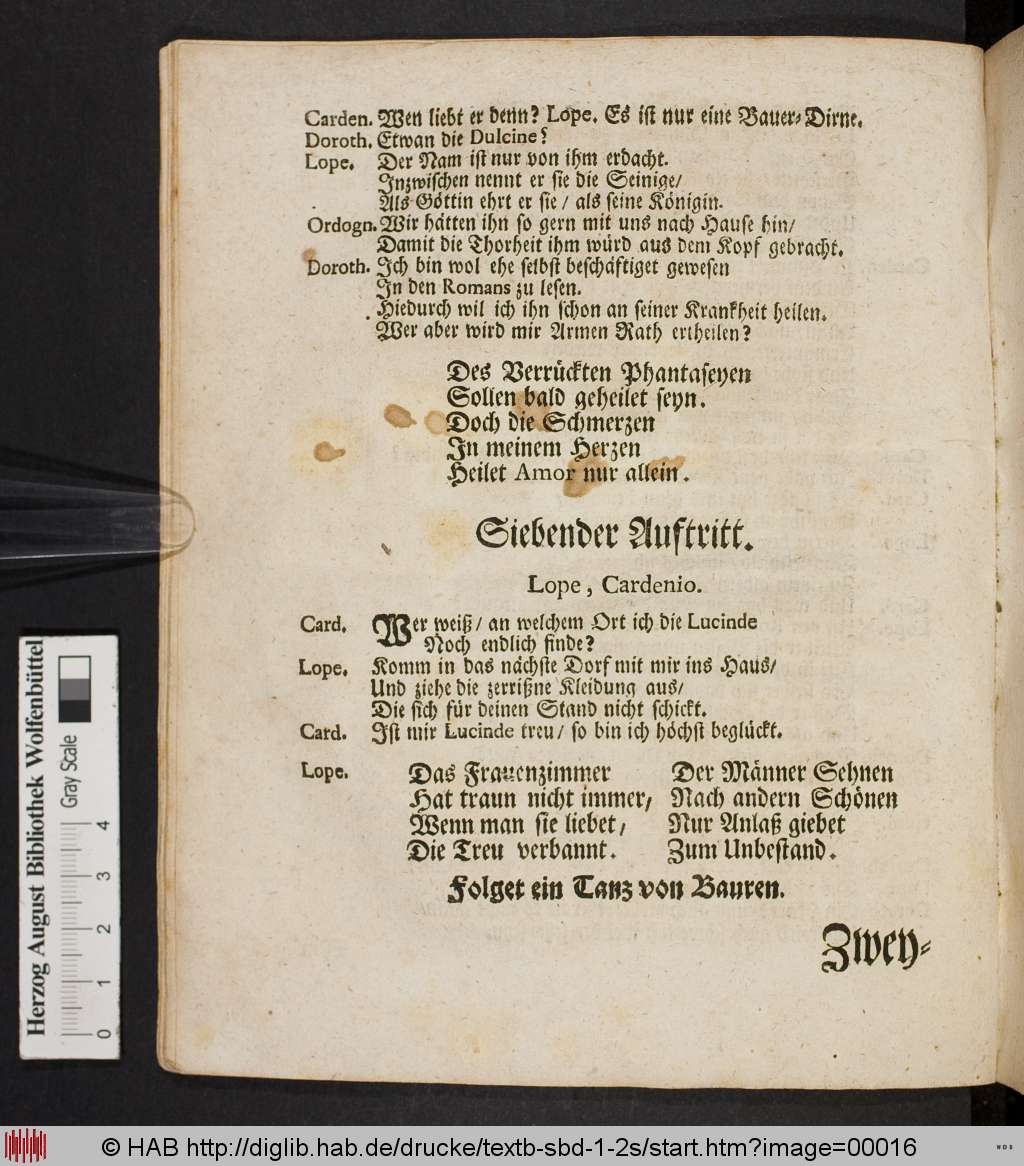 Carden. Wen liebt er denn? Lope. Es ist nur eine Bauer-Dirne.
Doroth. Etwan die Dulcine?
Lope. Der Nam ist nur von ihm erdacht.
Inzwischen nennt er sie die Seinige/
Als Göttin ehrt er sie / als seine Königin.
Ordogn. Wir hätten ihn so gern mit uns nach Hause hin/
Damit die Thorheit ihm würd aus dem Kopf gebracht.
Doroth. Ich bin wol ehe selbst beschäftiget gewesen
In den Romans zu lesen.
Hiedurch wil ich ihn schon an seiner Krankheit heilen.
Wer aber wird mir Armen Rath ertheilen?
Des Verrückten Phantaseyen
Sollen bald geheilet seyn.
Doch die Schmerzen
In meinem Herzen
Heilet Amor nur allein.
Siebender Auftritt.
Lope, Cardenio.
Card. Wer weiß/ an welchem Ort ich die Lucinde
Noch endlich finde?
Lope. Komm in das nächste Dorf mit mir ins Haus/
Und ziehe die zerrißne Kleidung aus/
Die sich für deinen Stand nicht schickt.
Card. Ist mir Lucinde treu/ so bin ich höchst beglückt.
Lope. Das Frauenzimmer
Hat traun nicht immer,
Wenn man sie liebet,
Die Treu verbannt.
Der Männer Sehnen
Nach andern Schönen
Nur Anlaß giebet
Zum Unbestand.
Folget ein Tanz von Bauren.
Zwey-
Herzog August Bibliothek Wolfenbüttel
Gray Scale
0 1 2 3 4
© HAB http://diglib.hab.de/drucke/textb-sbd-1-2s/start.htm?image=00016